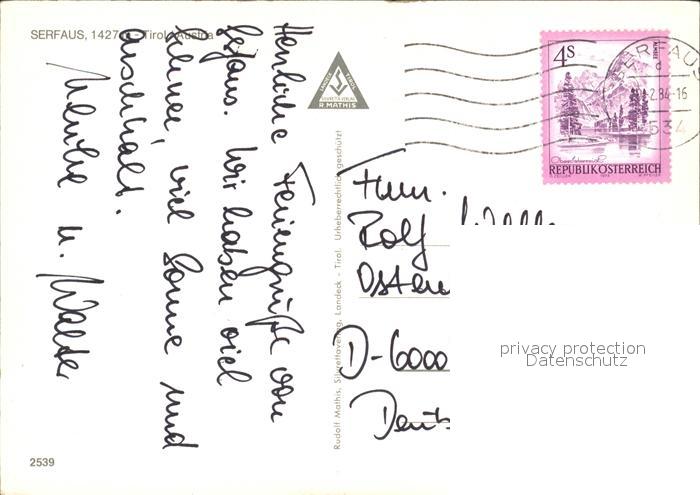 SERFAUS, 1427 m - Tirol, Austria
Herzliche Feriengrüße von
Serfaus. Wir haben viel
Schnee, viel Sonne und
u. Walter
R. MATHIS
Rudolf Mathis, Silvrettaverlag, Landeck - Tirol. Urheberrechtlich geschützt
4S
REPUBLIK ÖSTERREICH
SERFAUS
.2.84-16
534
Fam.
Rolf
Osten
D-6000
Deuts
privacy protection
Datenschutz
2539